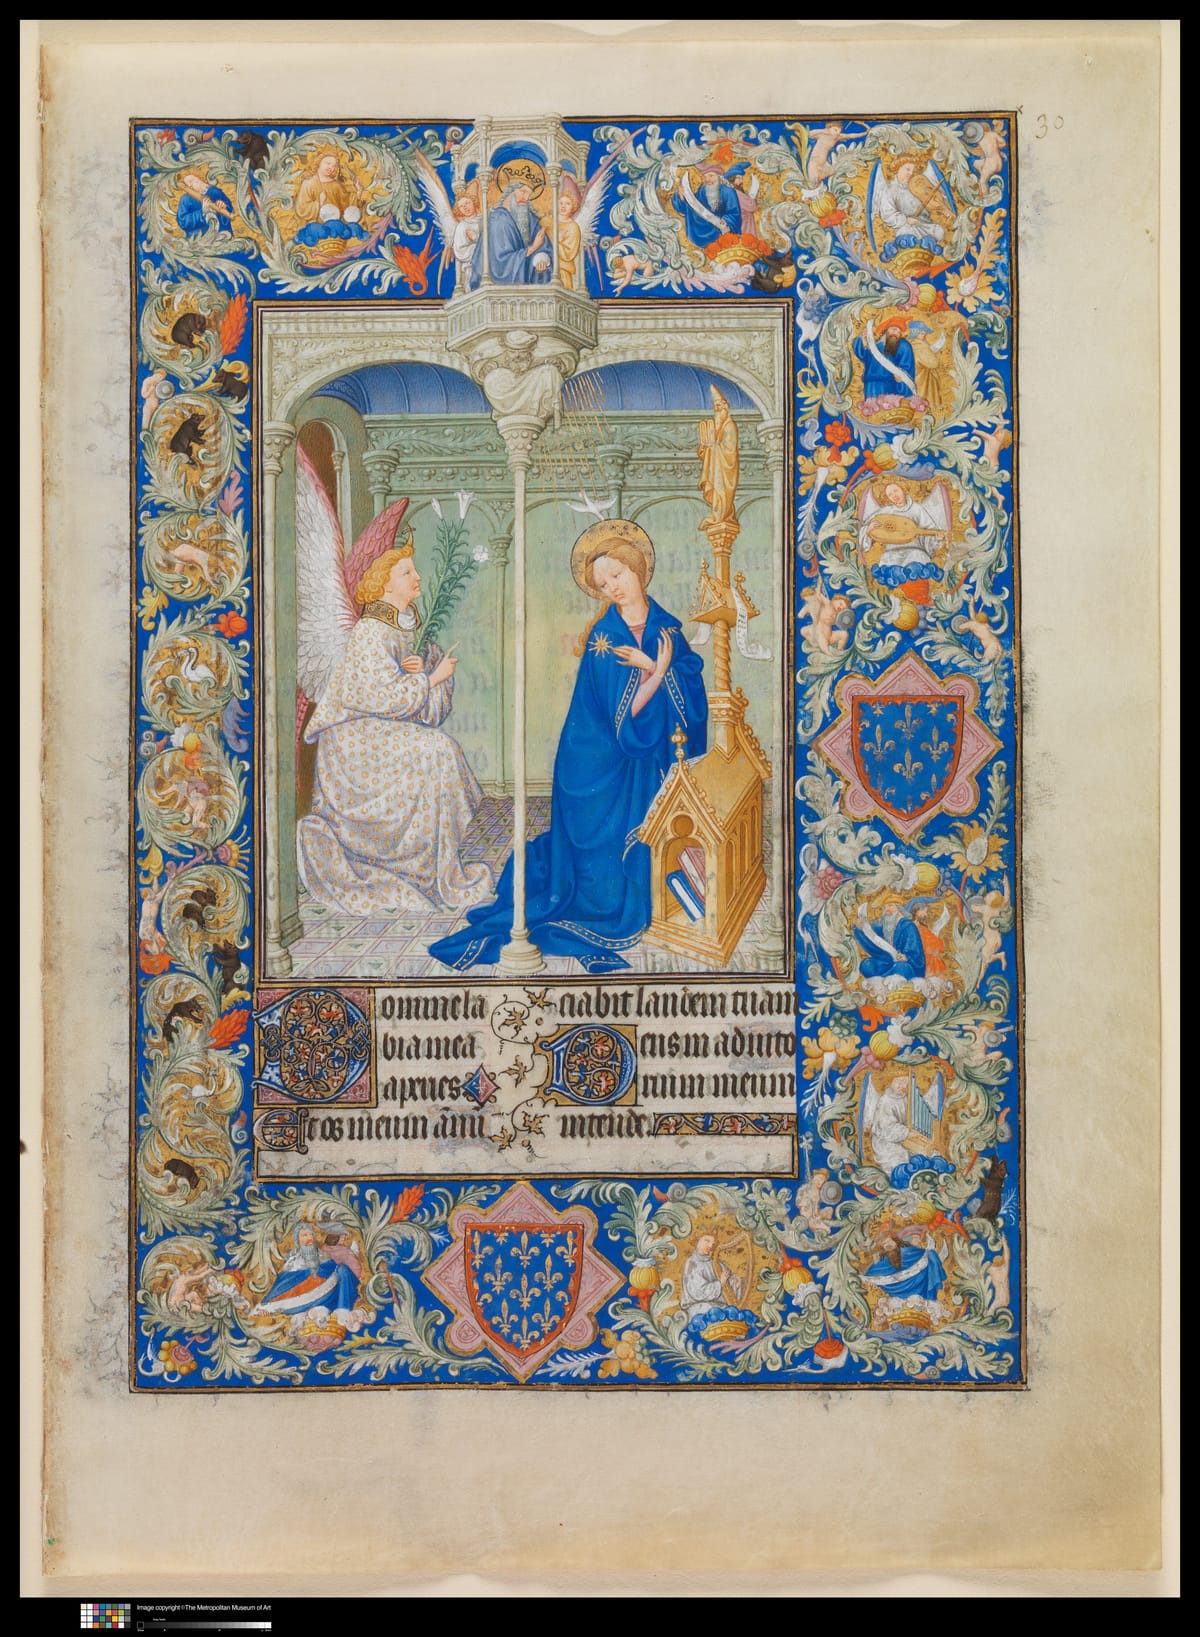 30
Domine la
bia mea
aperies
Et os meum ānū
ciabit laudem tuam
Deus in adiuto
rium meum
intende
Image copyright © The Metropolitan Museum of Art